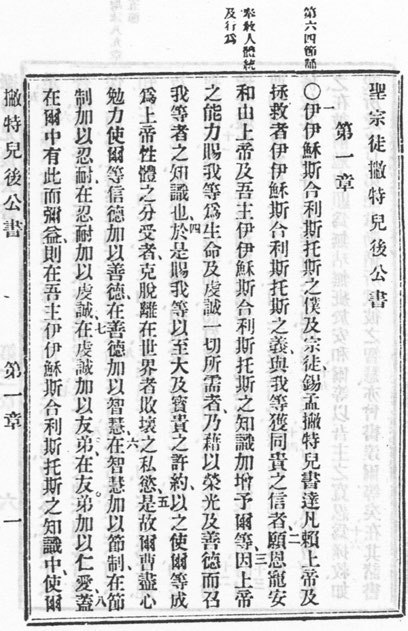 聖宗徒撇特兒後公書
第一章
第六四節誦
奉教人體統
及行爲
一
〇伊伊穌斯合利斯托斯之僕及宗徒、錫孟撇特兒書達凡賴上帝及
拯救者伊伊穌斯合利斯托斯之義、與我等獲同貴之信者、二願恩寵安
和由上帝及吾主伊伊穌斯合利斯托斯之知識加增予爾等、三因上帝
之能力賜我等爲生命及虔誠一切所需者、乃藉以榮光及善德而召
我等者之知識也、四於是賜我等以至大及寶貴之許約、以之使爾等成
爲上帝性體之分受者、克脫離在世界者敗壞之私慾、五是故爾曹盡心
勉力使爾等信德加以善德、在善德加以智慧、六在智慧加以節制、在節
制加以忍耐、在忍耐加以虔誠、七在虔誠加以友弟、在友弟加以仁愛、八蓋
在爾中有此而彌益、則在吾主伊伊穌斯合利斯托斯之知識中、使爾
撇特兒後公書
第一章
一